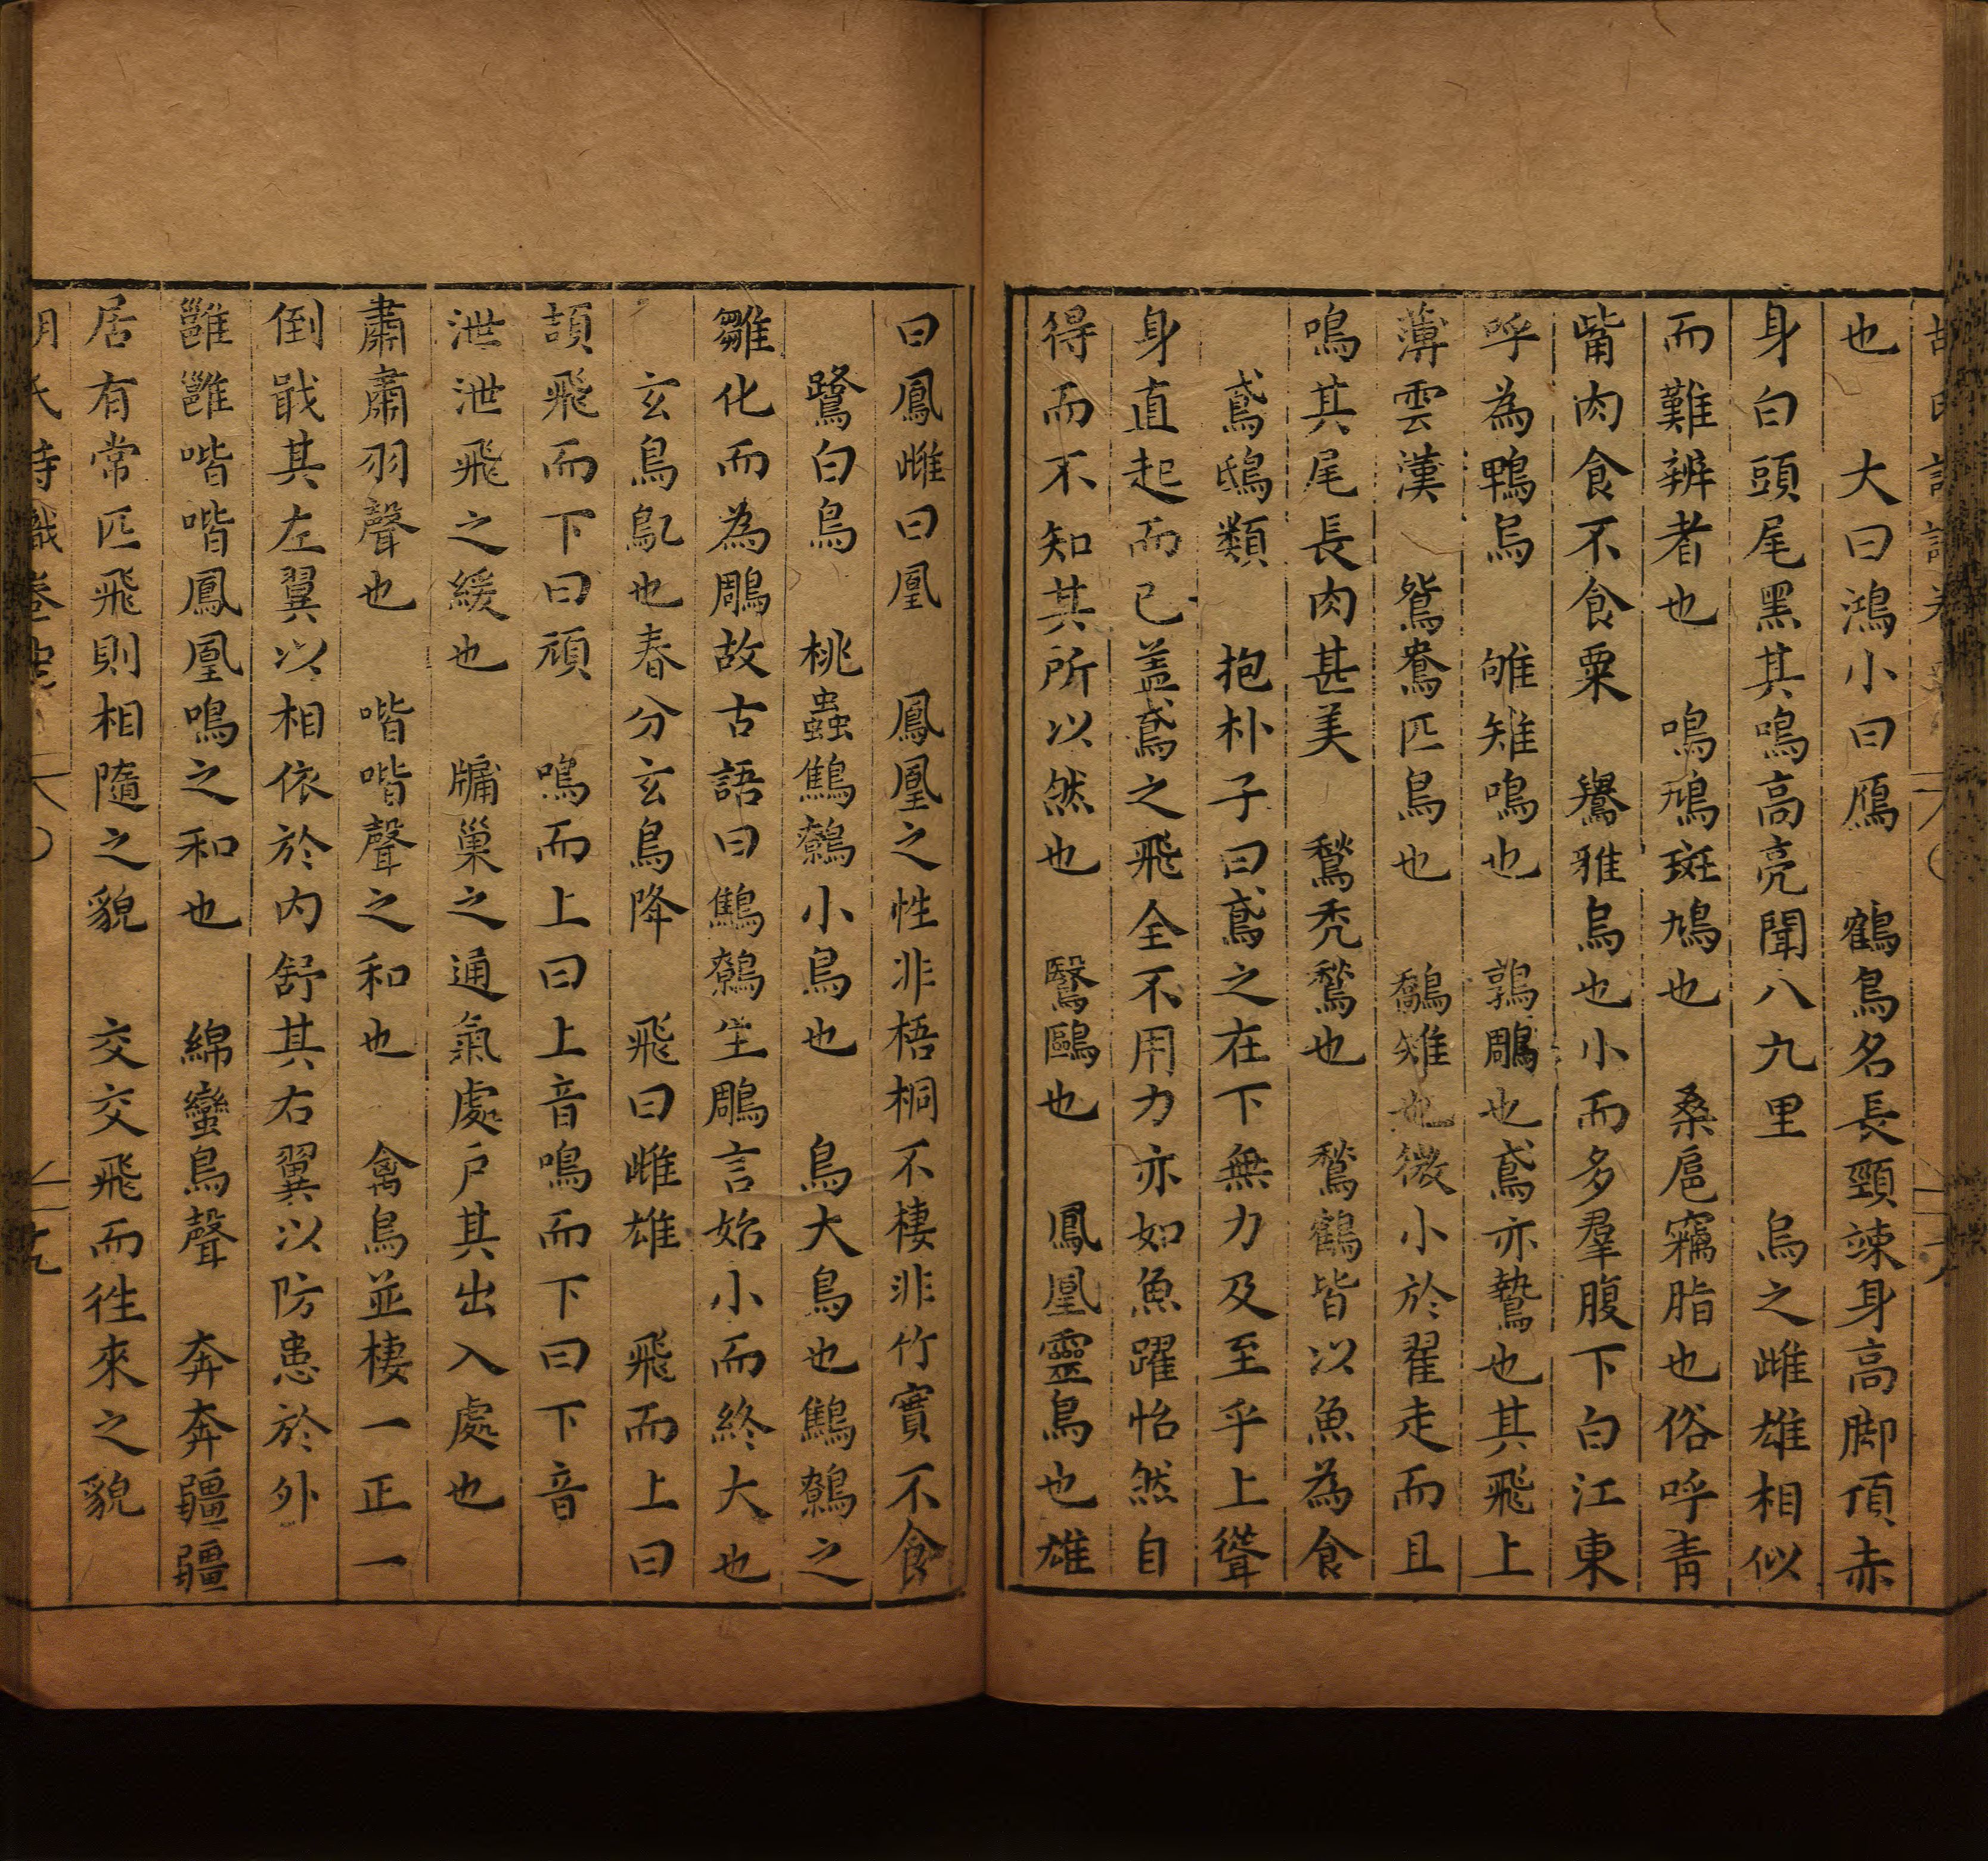 也　大曰鴻小曰鴈　鶴鳥名長頸竦身高脚頂赤
身白頭尾黑其鳴高亮聞八九里　烏之雌雄相似
而難辨者也　鳴鳩斑鳩也　桑扈竊脂也俗呼青
觜肉食不食粟　鸒雅烏也小而多羣腹下白江東
呼為鵯烏　雊雉鳴也　鶉鵰也鳶亦鷙也其飛上
薄雲漢　鴛鴦匹鳥也　鷮雉也微小於翟走而且
鳴其尾長肉甚美　鶖禿鶖也　鶖鶴皆以魚為食
鳶鴟類　抱朴子曰鳶之在下無力及至乎上聳
身直起而已盖鳶之飛全不用力亦如魚躍怡然自
得而不知其所以然也　鷖鷗也　鳳凰靈鳥也雄
曰鳳雌曰凰　鳳凰之性非梧桐不棲非竹實不食
鷺白鳥　桃蟲鷦鷯小鳥也　鳥大鳥也鷦鷯之
雛化而為鵰故古語曰鷦鷯生鵰言始小而終大也
玄鳥鳦也春分玄鳥降　飛曰雌雄　飛而上曰
頡飛而下曰頏　鳴而上曰上音鳴而下曰下音
泄泄飛之緩也　牖巢之通氣處戶其出入處也
肅肅羽聲也　喈喈聲之和也　禽鳥並棲一正一
倒戢其左翼以相依於內舒其右翼以防患於外
雝雝喈喈鳳凰鳴之和也　綿蠻鳥聲　奔奔疆疆
居有常匹飛則相隨之貌　交交飛而徃來之貌